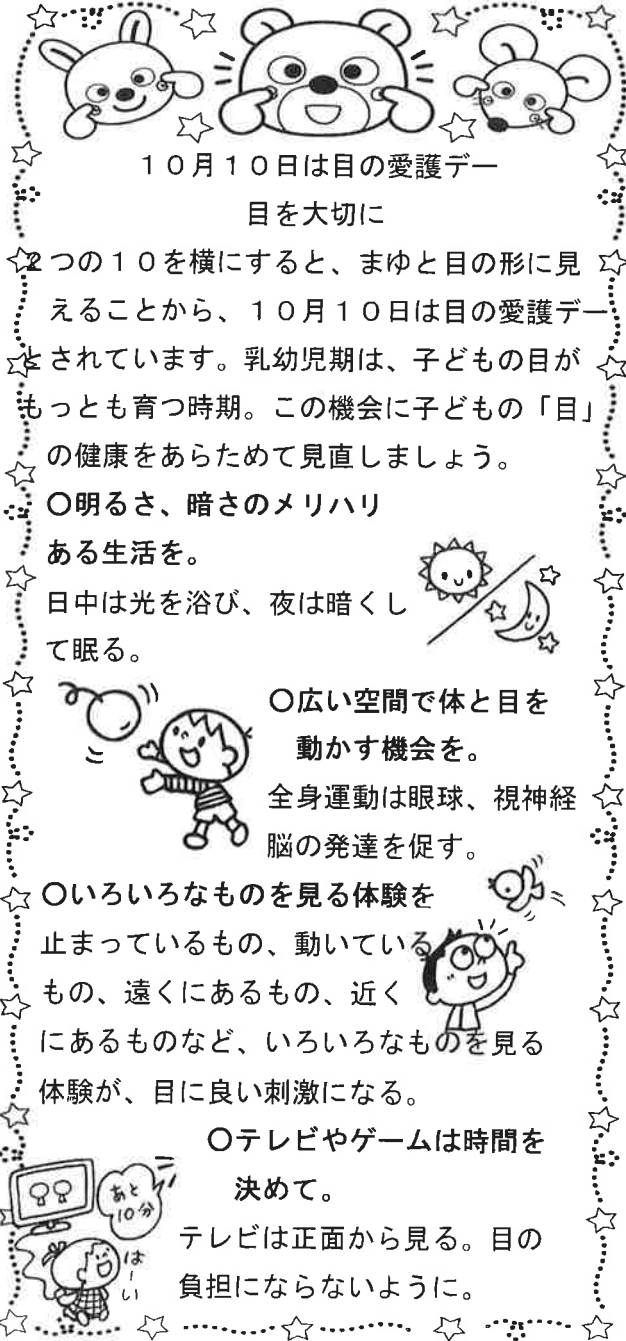 １０月１０日は目の愛護デー
目を大切に
２つの１０を横にすると、まゆと目の形に見
えることから、１０月１０日は目の愛護デー
とされています。乳幼児期は、子どもの目が
もっとも育つ時期。この機会に子どもの「目」
の健康をあらためて見直しましょう。
〇明るさ、暗さのメリハリ
ある生活を。
日中は光を浴び、夜は暗くし
て眠る。
〇広い空間で体と目を
動かす機会を。
全身運動は眼球、視神経
脳の発達を促す。
〇いろいろなものを見る体験を
止まっているもの、動いている
もの、遠くにあるもの、近く
にあるものなど、いろいろなものを見る
体験が、目に良い刺激になる。
〇テレビやゲームは時間を
決めて。
あと
10分
はーい
テレビは正面から見る。目の
負担にならないように。